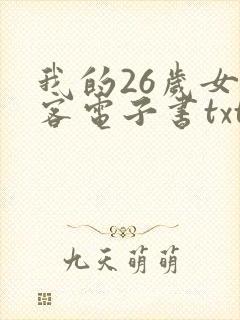 我的26岁女
客电子书txt
九天萌萌